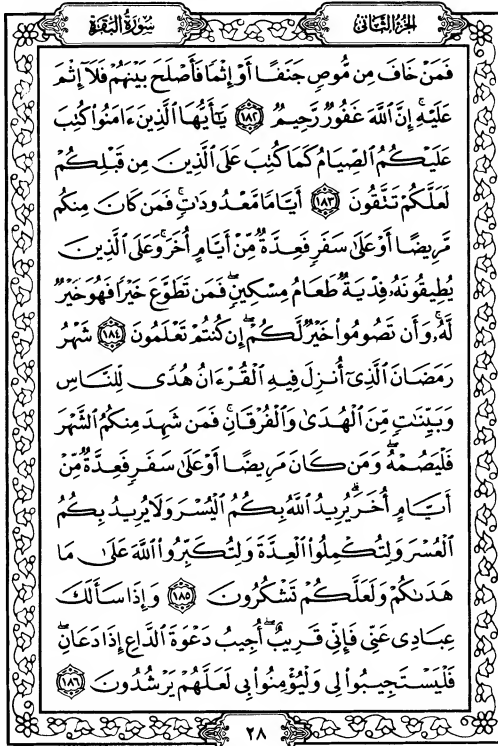 سُورَةُ البَقَرَةِ
الجُزءُ الثَّانِي
فَمَنْ خَافَ مِن مُّوصٍ جَنَفًا أَوْ إِثْمًا فَأَصْلَحَ بَيْنَهُمْ فَلَآ إِثْمَ
عَلَيْهِ ۚ إِنَّ اللَّهَ غَفُورٌ رَّحِيمٌ ١٨٢ يَٰٓأَيُّهَا الَّذِينَ ءَامَنُوا كُتِبَ
عَلَيْكُمُ الصِّيَامُ كَمَا كُتِبَ عَلَى الَّذِينَ مِن قَبْلِكُمْ
لَعَلَّكُمْ تَتَّقُونَ ١٨٣ أَيَّامًا مَّعْدُودَٰتٍ ۚ فَمَن كَانَ مِنكُم
مَّرِيضًا أَوْ عَلَىٰ سَفَرٍ فَعِدَّةٌ مِّنْ أَيَّامٍ أُخَرَ ۚ وَعَلَى الَّذِينَ
يُطِيقُونَهُۥ فِدْيَةٌ طَعَامُ مِسْكِينٍ ۖ فَمَن تَطَوَّعَ خَيْرًا فَهُوَ خَيْرٌ
لَّهُۥ ۚ وَأَن تَصُومُوا خَيْرٌ لَّكُمْ ۖ إِن كُنتُمْ تَعْلَمُونَ ١٨٤ شَهْرُ
رَمَضَانَ الَّذِىٓ أُنزِلَ فِيهِ الْقُرْءَانُ هُدًى لِّلنَّاسِ
وَبَيِّنَٰتٍ مِّنَ الْهُدَىٰ وَالْفُرْقَانِ ۚ فَمَن شَهِدَ مِنكُمُ الشَّهْرَ
فَلْيَصُمْهُ ۖ وَمَن كَانَ مَرِيضًا أَوْ عَلَىٰ سَفَرٍ فَعِدَّةٌ مِّنْ
أَيَّامٍ أُخَرَ ۗ يُرِيدُ اللَّهُ بِكُمُ الْيُسْرَ وَلَا يُرِيدُ بِكُمُ
الْعُسْرَ وَلِتُكْمِلُوا الْعِدَّةَ وَلِتُكَبِّرُوا اللَّهَ عَلَىٰ مَا
هَدَىٰكُمْ وَلَعَلَّكُمْ تَشْكُرُونَ ١٨٥ وَإِذَا سَأَلَكَ
عِبَادِى عَنِّى فَإِنِّى قَرِيبٌ ۖ أُجِيبُ دَعْوَةَ الدَّاعِ إِذَا دَعَانِ ۖ
فَلْيَسْتَجِيبُوا لِى وَلْيُؤْمِنُوا بِى لَعَلَّهُمْ يَرْشُدُونَ ١٨٦
٢٨